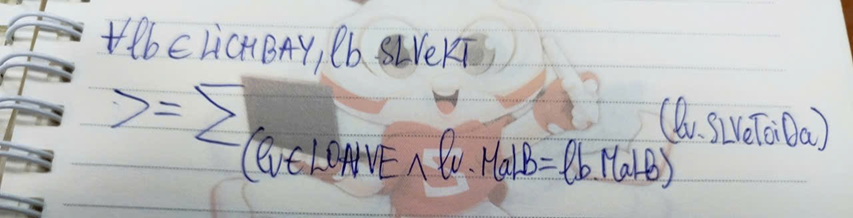 ∀lb ∈ LICHBAY, lb.SLVeKT
>= ∑ (lv ∈ LOAIVE ∧ lv.MaLB = lb.MaLB) (lv.SLVeToiDa)